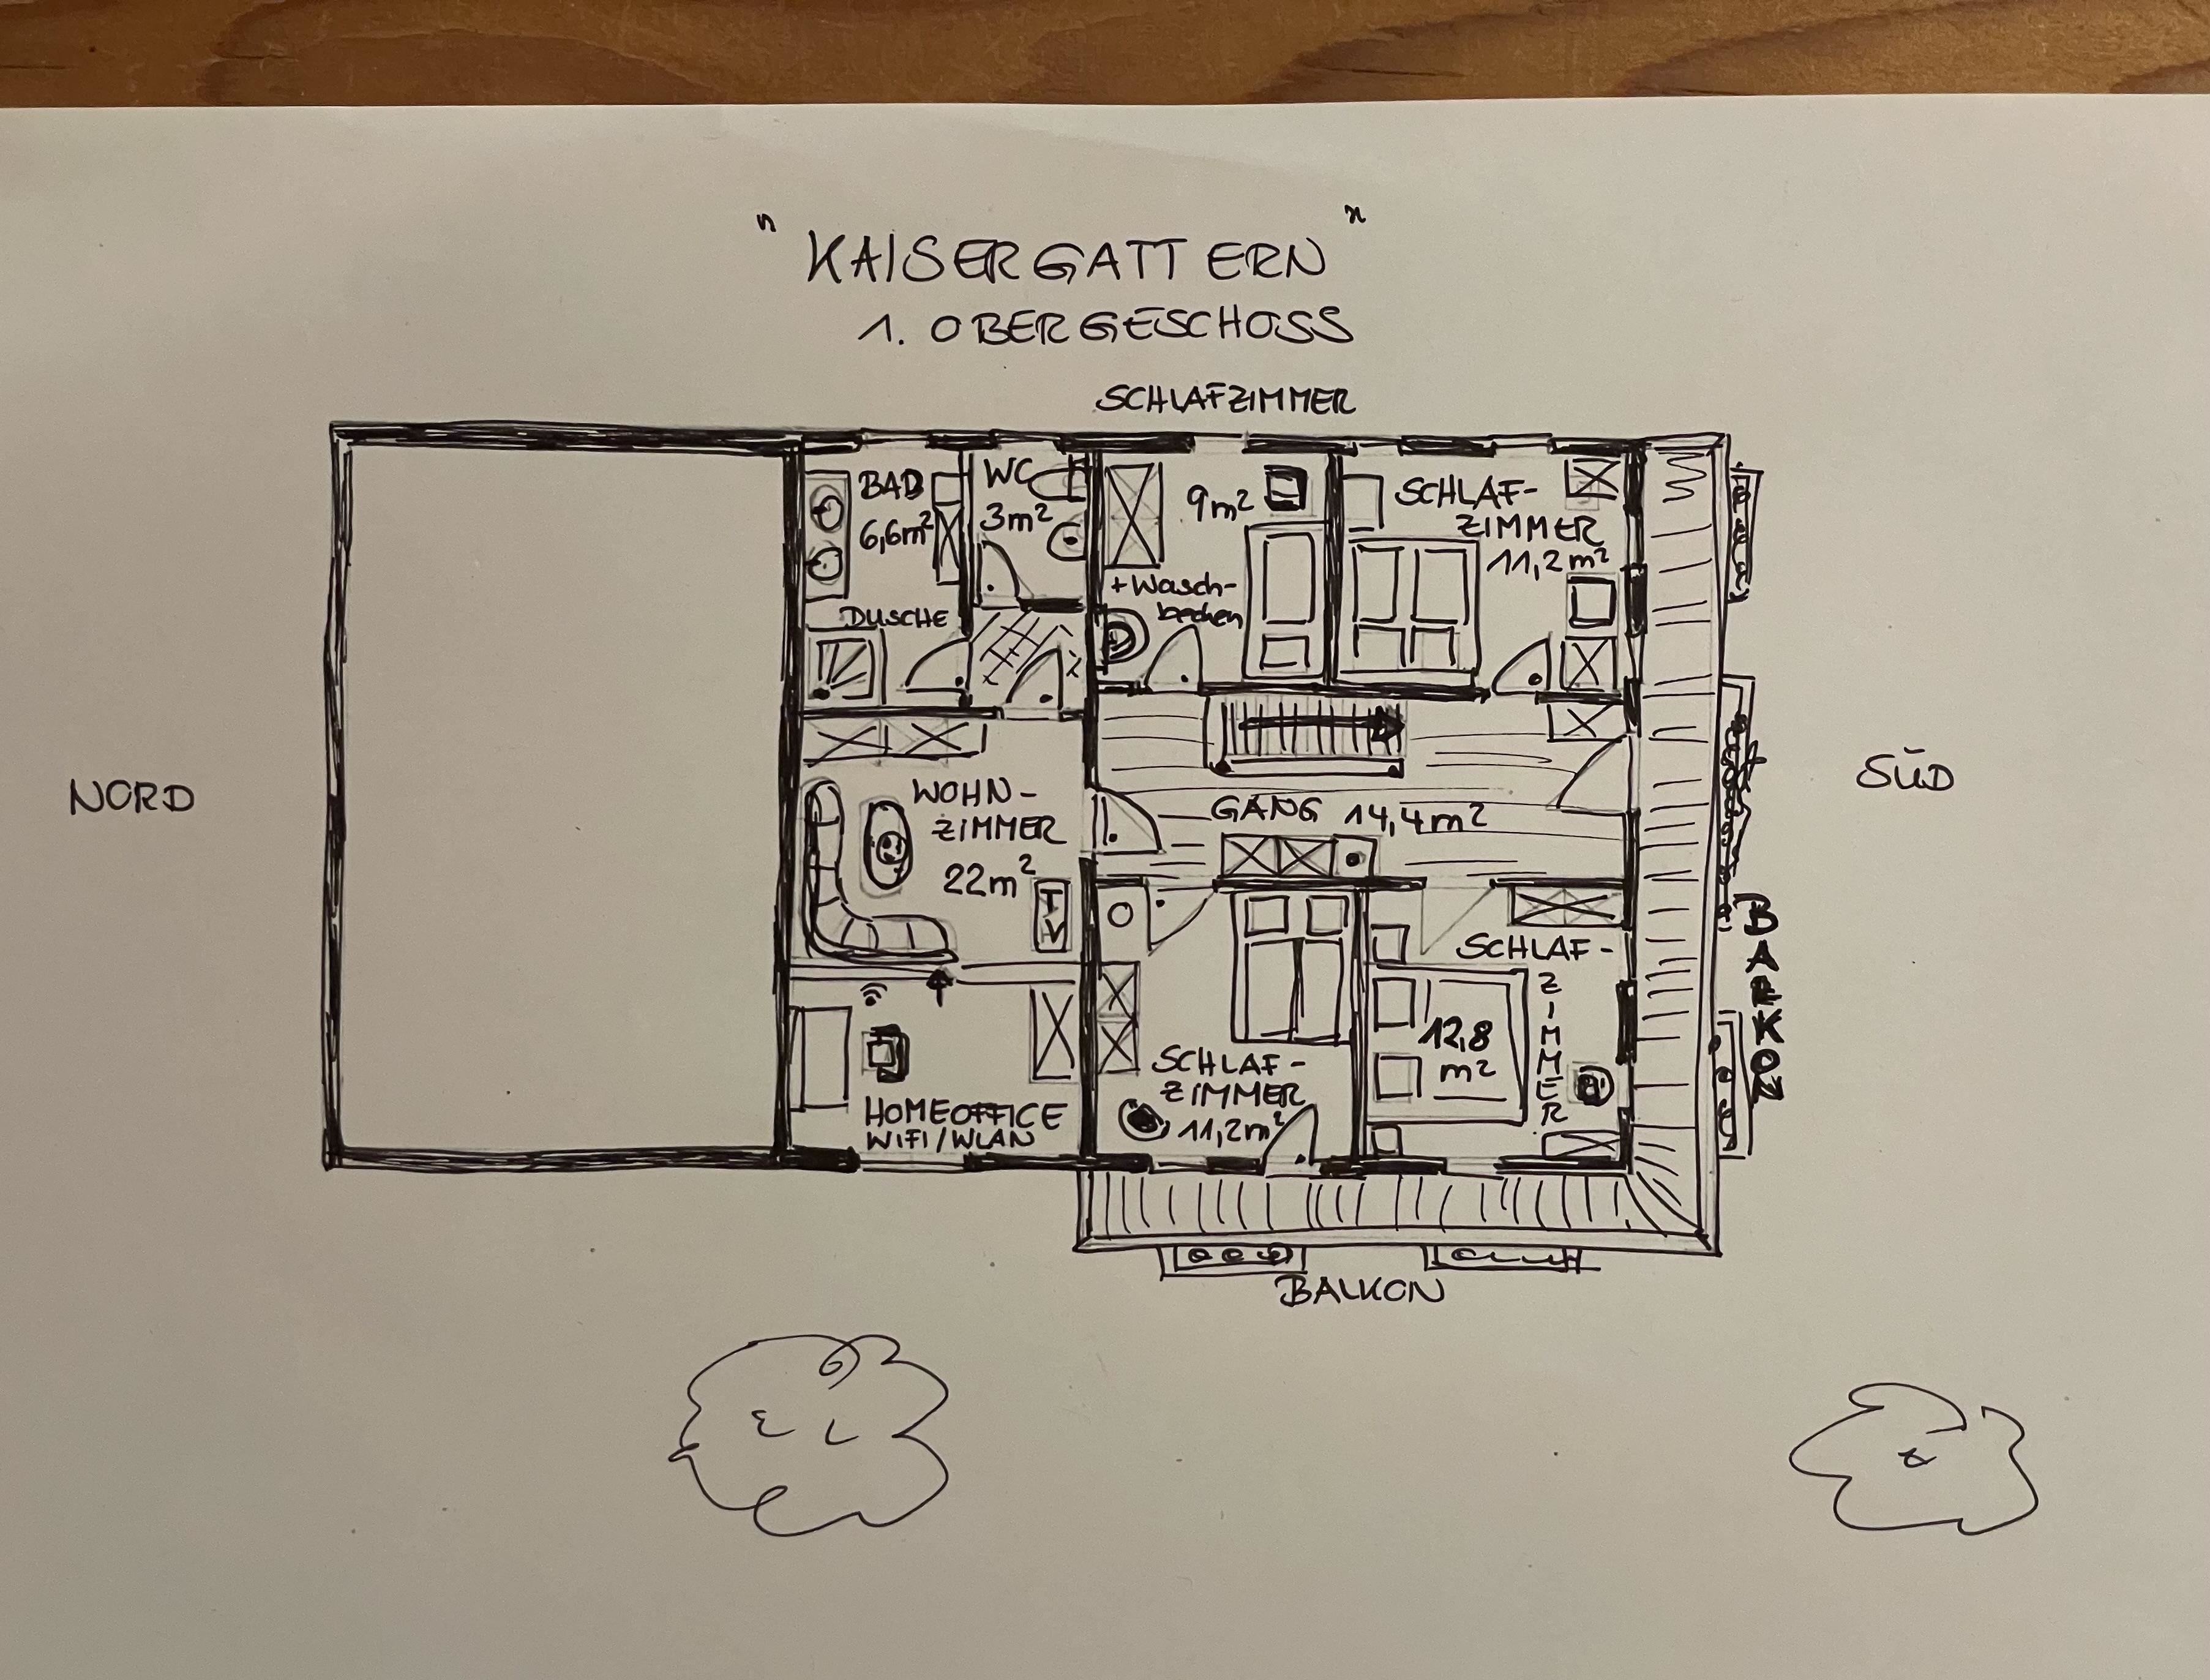 "KAISERGATTERN"
1. OBERGESCHOSS
SCHLAFZIMMER
BAD
6,6m²
WC
3m²
9m²
+Wasch-
becken
SCHLAF-
ZIMMER
11,2m²
DUSCHE
NORD
WOHN-
ZIMMER
22m²
TV
GANG 14,4m²
SÜD
BALKON
HOMEOFFICE
WIFI/WLAN
SCHLAF-
ZIMMER
11,2m²
SCHLAF-
ZIMMER
12,8
m²
BALKON